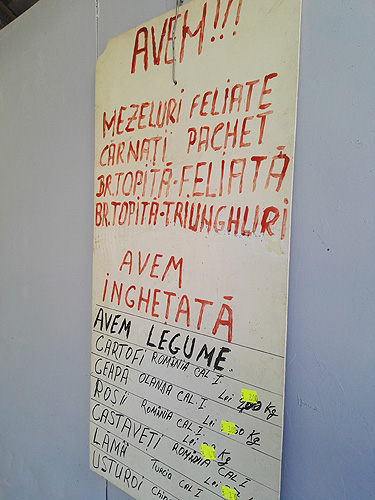 AVEM!!!
MEZELURI FELIATE
CARNAȚI PACHET
BR.TOPITĂ-FELIATĂ
BR.TOPITA-TRIUNGHIURI
AVEM
INGHETATĂ
AVEM LEGUME.
CARTOFI ROMÂNIA CAL I
Lei Kg
CEAPA OLANDA CAL. I
Lei Kg
ROȘII ROMÂNIA CAL I
Lei Kg
CASTAVEȚI ROMÂNIA CAL I
Lei
LĂMÂI TURCIA CAL I
Lei
USTUROI